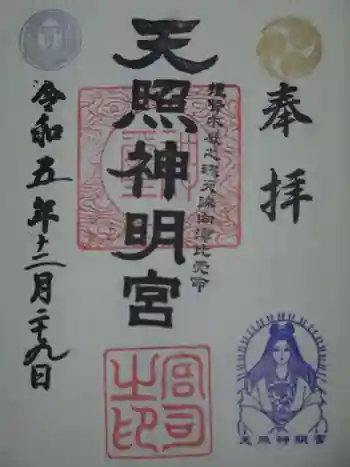 奉拝
天照神明宮
令和五年十二月二十九日
宮司之印
天照神明宮